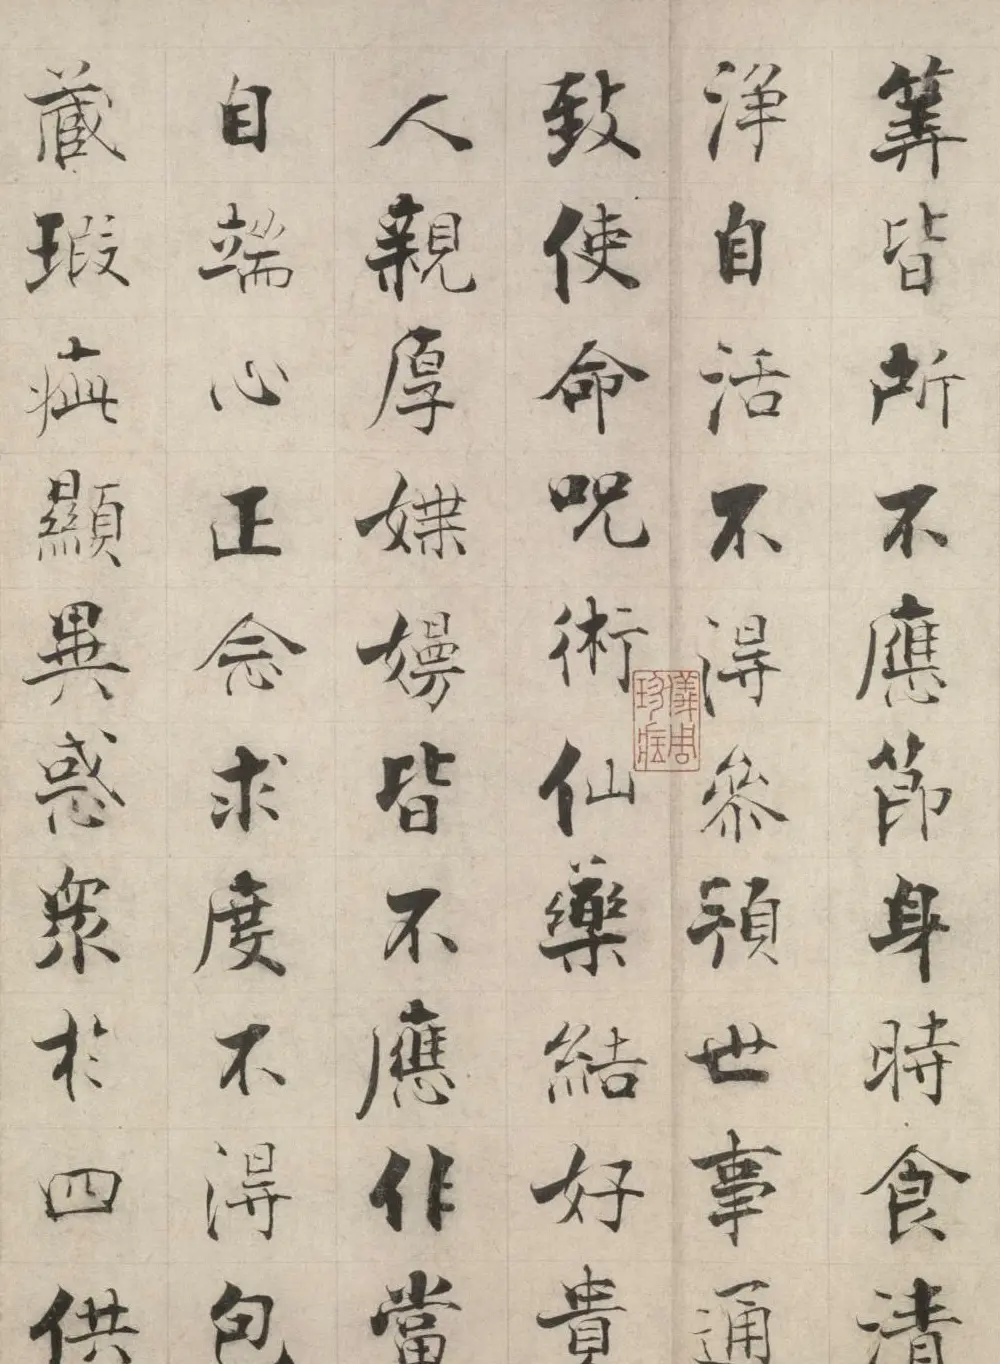 筭皆所不應節身時食清
淨自活不得參預世事通
致使命呪術仙藥結好貴
人親厚媟嫚皆不應作當
自端心正念求度不得包
藏瑕疵顯異惑眾於四供
儀周珍藏